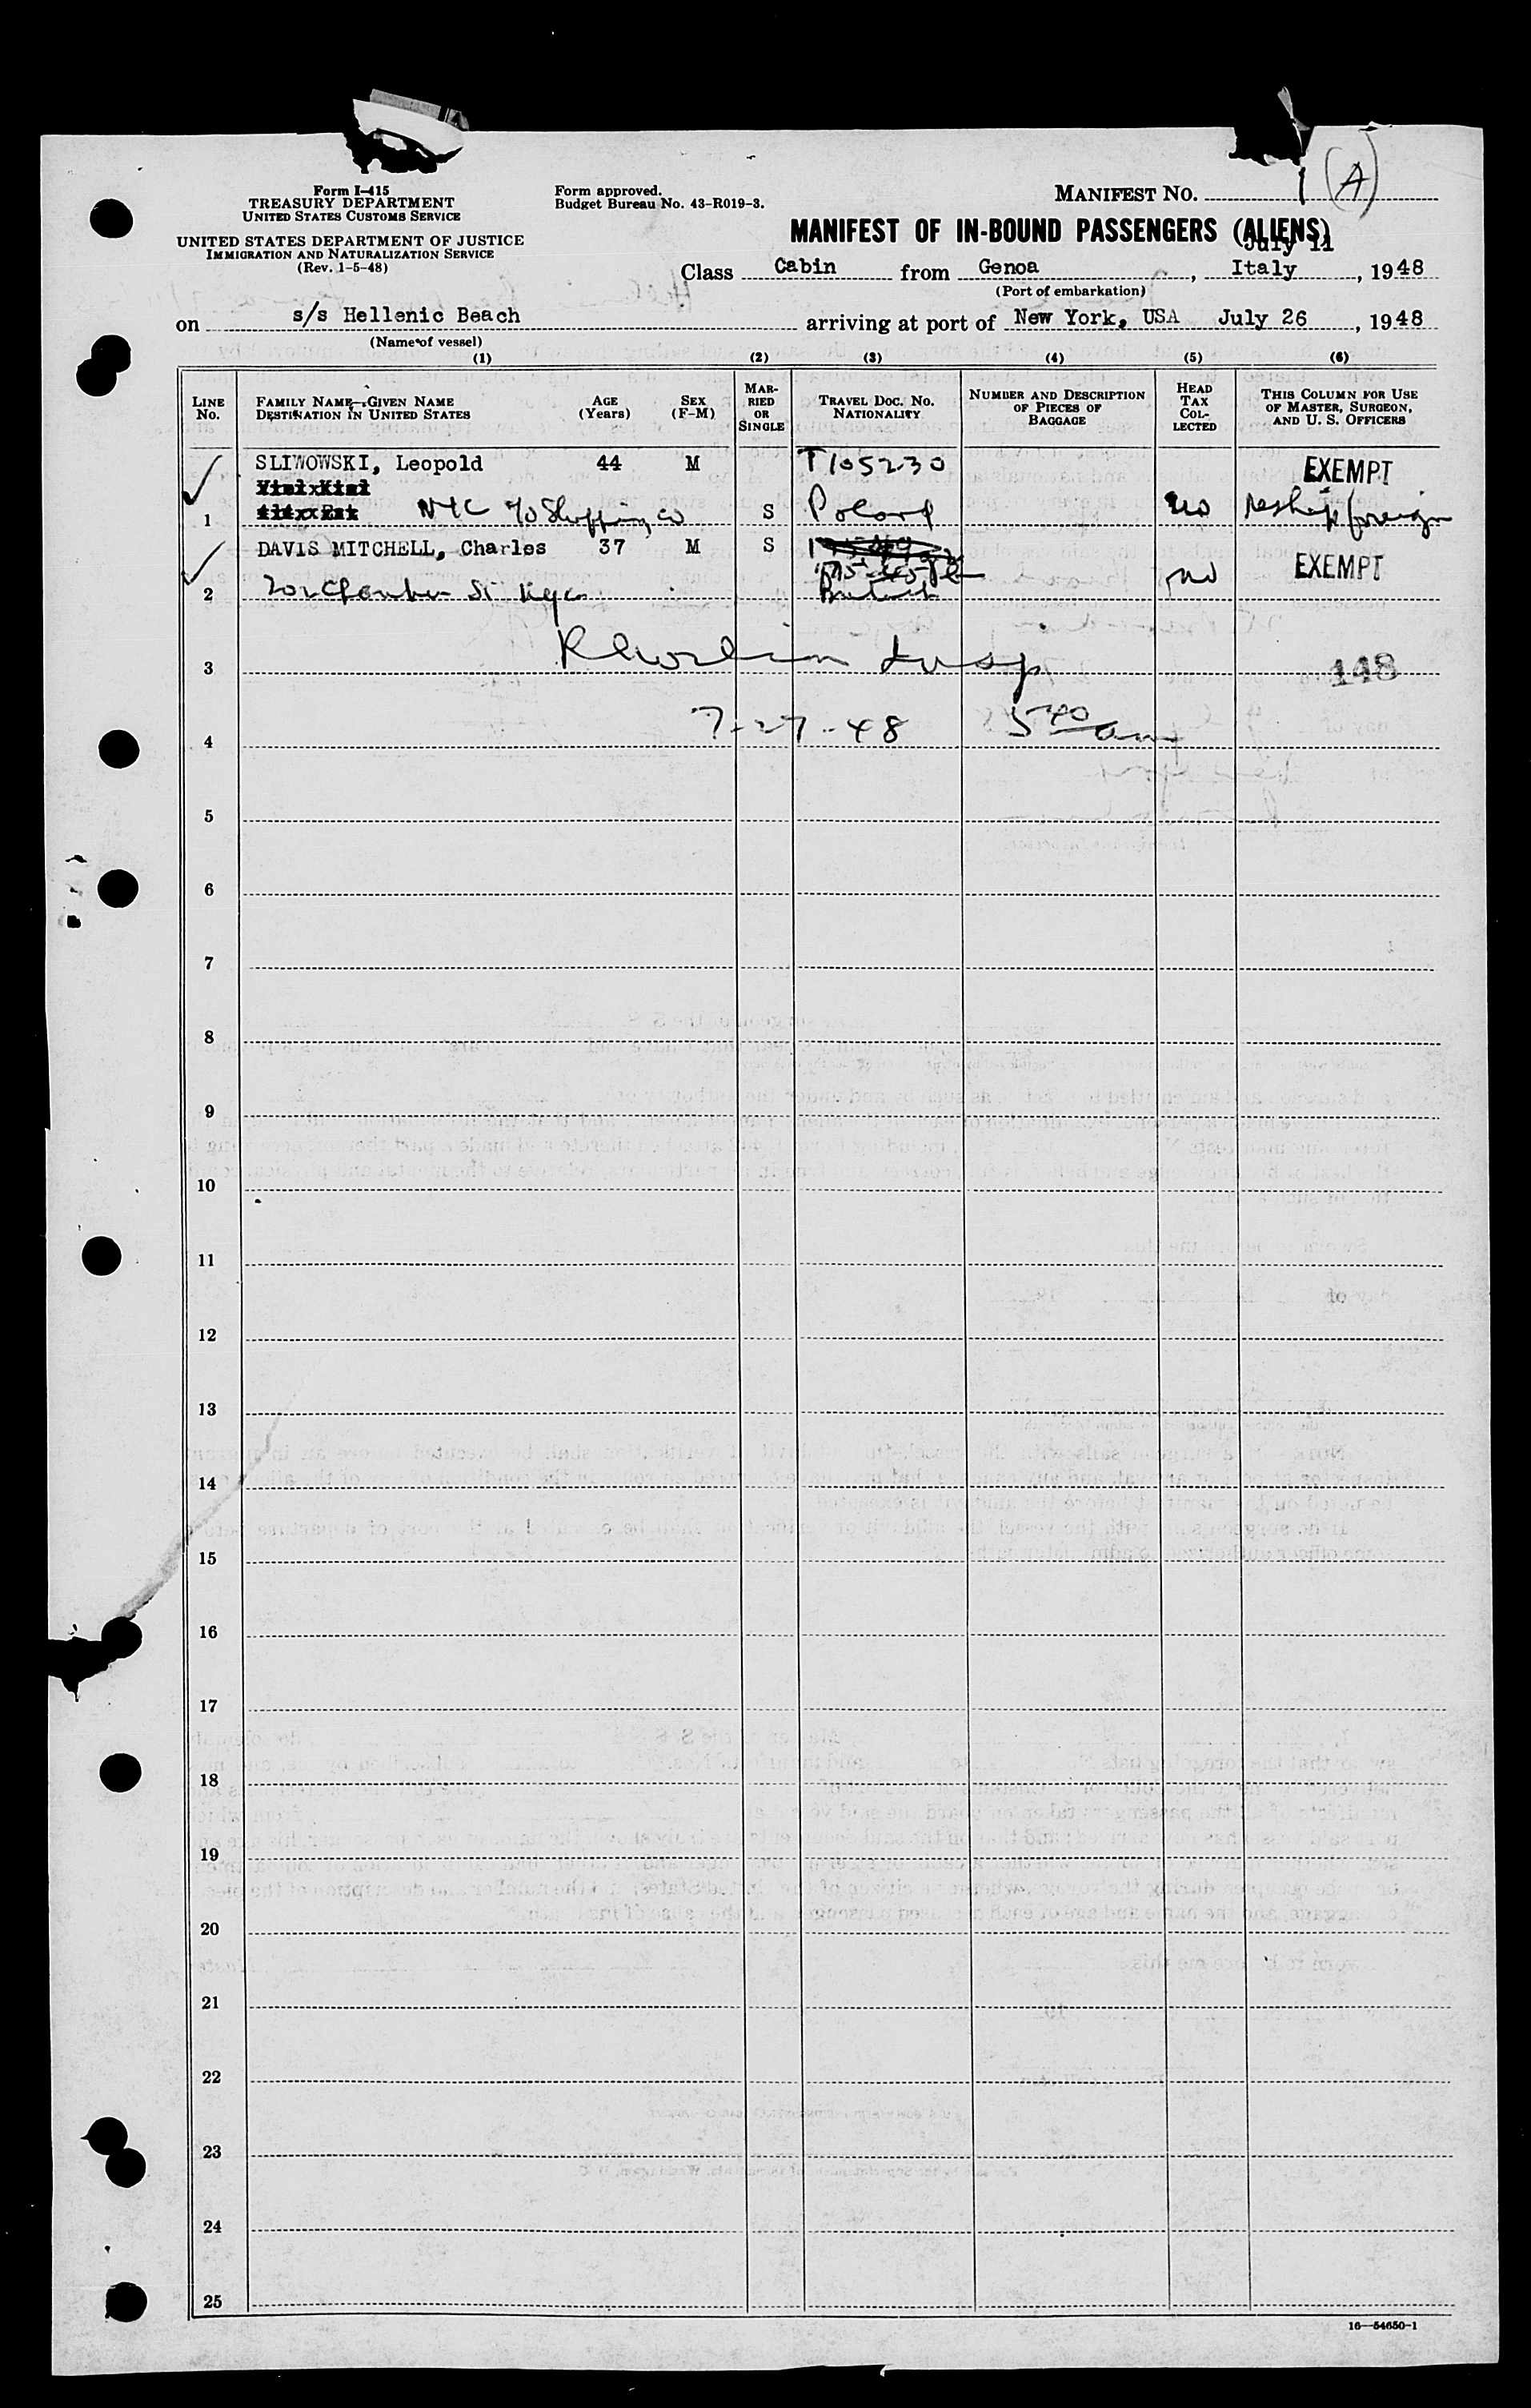 1 (A)
Form I-415
TREASURY DEPARTMENT
UNITED STATES CUSTOMS SERVICE
Form approved.
Budget Bureau No. 43-R019-3.
MANIFEST NO.
UNITED STATES DEPARTMENT OF JUSTICE
IMMIGRATION AND NATURALIZATION SERVICE
(Rev. 1-5-48)
MANIFEST OF IN-BOUND PASSENGERS (ALIENS)
July 11
Class Cabin from Genoa, Italy, 1948
(Port of embarkation)
on s/s Hellenic Beach arriving at port of New York, USA July 26, 1948
(Name of vessel)
(1) (2) (3) (4) (5) (6)
LINE No.
FAMILY NAME—GIVEN NAME
DESTINATION IN UNITED STATES
AGE (Years)
SEX (F-M)
MARRIED OR SINGLE
TRAVEL DOC. NO. NATIONALITY
NUMBER AND DESCRIPTION OF PIECES OF BAGGAGE
HEAD TAX COLLECTED
THIS COLUMN FOR USE OF MASTER, SURGEON, AND U. S. OFFICERS
SLIWOWSKI, Leopold 44 M T105230 EXEMPT
1 NYC c/o Shipping co S Poland no reship foreign
DAVIS MITCHELL, Charles 37 M S EXEMPT
2 St nyc British no
3 Insp 148
4 7-27-48 5 40 am
5
6
7
8
9
10
11
12
13
14
15
16
17
18
19
20
21
22
23
24
25
16—54650-1